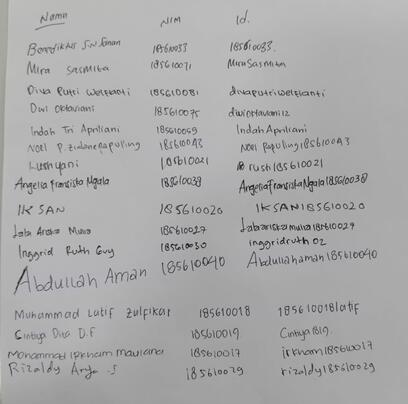 Nama NIM Id.
185610033 185610033.
Mira Sasmita 185610071 MiraSasmita
Diva Putri Welfianti 185610081 divaputriwelfianti
Dwi Oktaviani 185610075 dwioktaviani12
Indah Tri Apriliani 185610059 IndahApriliani
Noel P. 185610043 Noel 185610043
185610021 rusti185610021
Angelia Fransista Ngala 185610038 AngeliaFransistaNgala185610038
IKSAN 185610020 IKSAN185610020
185610027
Inggrid Ruth Guy 185610030 inggridruth02
Abdullah Aman 185610040 Abdullahaman185610040
Muhammad Latif Zulfikar 185610018 185610018latif
Cintiya Dita D.F 185610019. Cintiya1819.
Mohammad Irkham Maulana 185610017 irkham185610017
Rizaldy Arya .S 185610029 rizaldy185610029